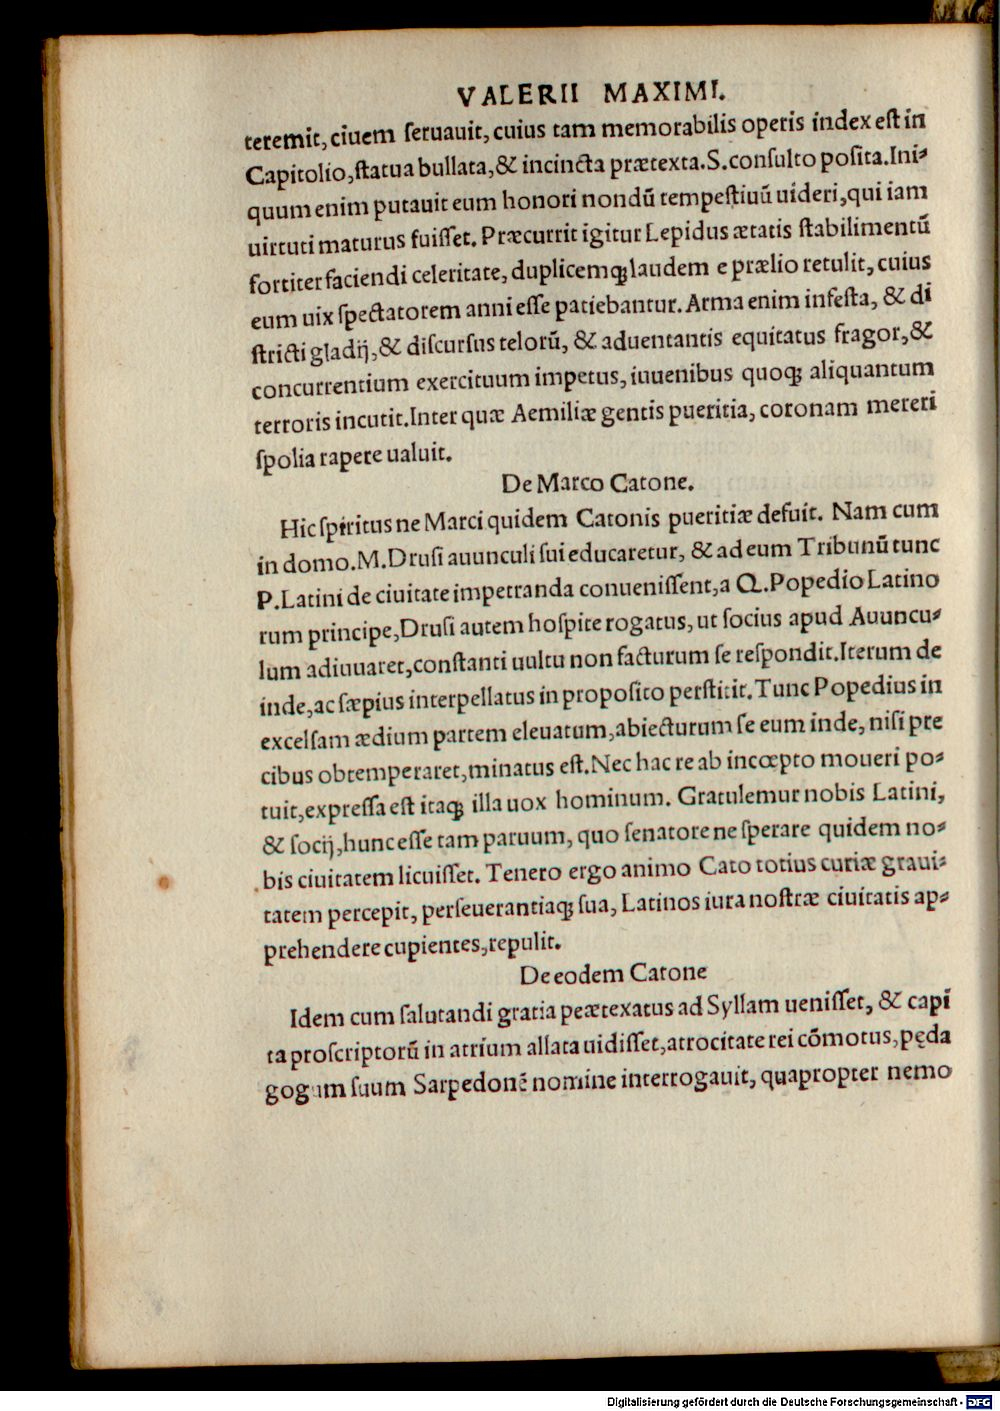 VALERII MAXIMI.
teremit, ciuem ſeruauit, cuius tam memorabilis operis index eſt in
Capitolio, ſtatua bullata, & incincta prætexta. S. conſulto poſita. Ini⸗
quum enim putauit eum honori nondū tempeſtiuū uideri, qui iam
uirtuti maturus fuiſſet. Præcurrit igitur Lepidus ætatis ſtabilimentū
fortiter faciendi celeritate, duplicemq́ꝫ laudem e prælio retulit, cuius
eum uix ſpectatorem anni eſſe patiebantur. Arma enim infeſta, & di
ſtricti gladij, & diſcurſus telorū, & aduentantis equitatus fragor, &
concurrentium exercituum impetus, iuuenibus quoqꝫ aliquantum
terroris incutit. Inter quæ Aemiliæ gentis pueritia, coronam mereri
ſpolia rapere ualuit.
De Marco Catone.
Hic ſpiritus ne Marci quidem Catonis pueritiæ defuit. Nam cum
in domo. M. Druſi auunculi ſui educaretur, & ad eum Tribunū tunc
P. Latini de ciuitate impetranda conueniſſent, a Q. Popedio Latino
rum principe, Druſi autem hoſpite rogatus, ut ſocius apud Auuncu⸗
lum adiuuaret, conſtanti uultu non facturum ſe reſpondit. Iterum de
inde, ac ſæpius interpellatus in propoſito perſtitit. Tunc Popedius in
excelſam ædium partem eleuatum, abiecturum ſe eum inde, niſi pre
cibus obtemperaret, minatus eſt. Nec hac re ab incœpto moueri po⸗
tuit, expreſſa eſt itaqꝫ illa uox hominum. Gratulemur nobis Latini,
& ſocij, hunc eſſe tam paruum, quo ſenatore ne ſperare quidem no⸗
bis ciuitatem licuiſſet. Tenero ergo animo Cato totius curiæ graui⸗
tatem percepit, perſeuerantiaqꝫ ſua, Latinos iura noſtræ ciuitatis ap⸗
prehendere cupientes, repulit.
De eodem Catone
Idem cum ſalutandi gratia peætexatus ad Syllam ueniſſet, & capi
ta proſcriptorū in atrium allata uidiſſet, atrocitate rei cōmotus, pęda
gogum ſuum Sarpedonē nomine interrogauit, quapropter nemo
Digitalisierung gefördert durch die Deutsche Forschungsgemeinschaft - DFG